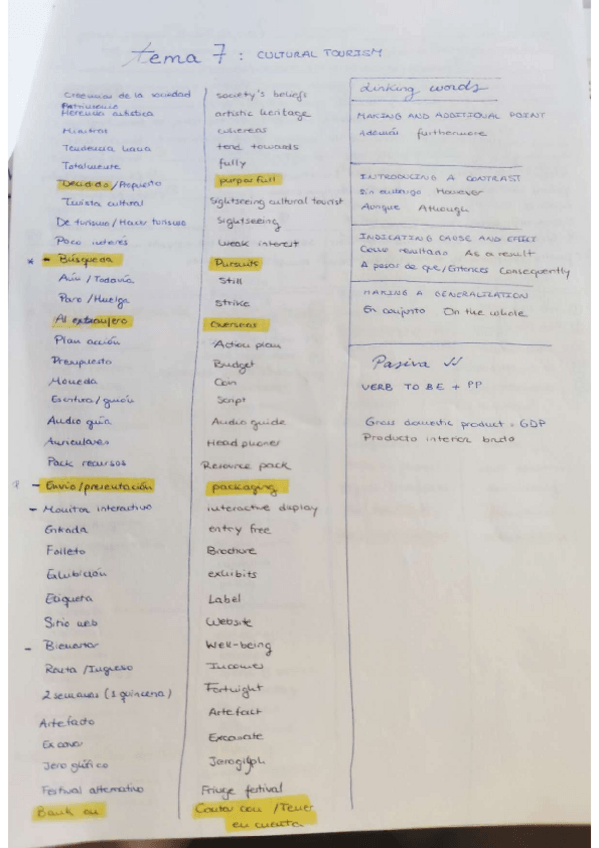 tema 7: CULTURAL TOURISM
Creencias de la sociedad society's beliefs
Patrimonio
Herencia artística artistic heritage
Mientras whereas
Tendencia hacia tend towards
Totalmente fully
Decidido/Propuesto purposfull
Turista cultural Sightseeing cultural tourist
De turismo/Hacer turismo Sightseeing
Poco interés weak interest
* - Búsqueda Pursuits
Aún/Todavía Still
Paro/Huelga Strike
Al extranjero Overseas
Plan acción Action plan
Presupuesto Budget
Moneda Coin
Escritura/guión Script
Audio guía Audio guide
Auriculares Head phones
Pack recursos Resource pack
- Envío/presentación packaging
- Monitor interactivo interactive display
Entrada entry free
Folleto Brochure
Exhibición exhibits
Etiqueta Label
Sitio web Website
- Bienestar Well-being
Renta/Ingreso Incomes
2 semanas (1 quincena) Fortnight
Artefacto Artefact
Excavar Excavate
Jeroglífico Jerogliph
Festival alternativo Fringe festival
Bank on Contar con/Tener
en cuenta
Linking words
MAKING AND ADDITIONAL POINT
Además furthermore
INTRODUCING A CONTRAST
Sin embargo However
Aunque Athough
INDICATING CAUSE AND EFFECT
Como resultado As a result
A pesar de que/Entonces Consequently
MAKING A GENERALIZATION
En conjunto On the whole
Pasiva
VERB TO BE + PP
Gross domestic product = GDP
Producto interior bruto